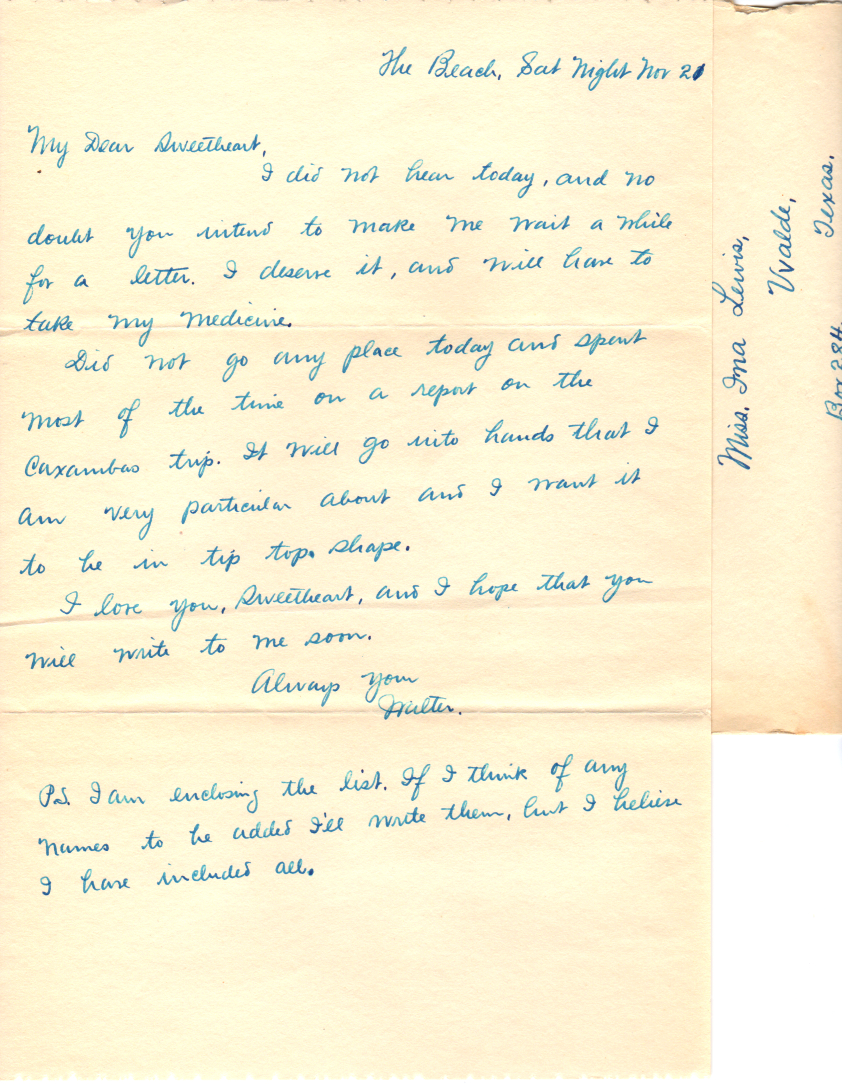 The Beach, Sat Night Nov 21
My Dear Sweetheart,
I did not hear today, and no
doubt you intend to make me wait a while
for a letter. I deserve it, and will have to
take my medicine.
Did not go any place today and spent
most of the time on a report on the
Caxambas trip. It will go into hands that I
am very particular about and I want it
to be in tip top. shape.
I love you, Sweetheart, and I hope that you
will write to me soon.
Always your
Walter.
P.S. I am enclosing the list. If I think of any
names to be added I'll write them, but I believe
I have included all.
Miss. Ina Lewis,
Uvalde,
Texas.
Box 284